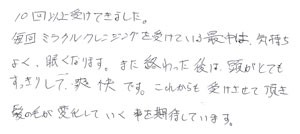 10回以上受けてきました。
毎回ミラクルクレンジングを受けている最中は、気持ち
よく、眠くなります。また終わった後は、頭がとても
すっきりして、爽快です。これからも受けさせて頂き
髪の毛が変化していく事を期待しています。